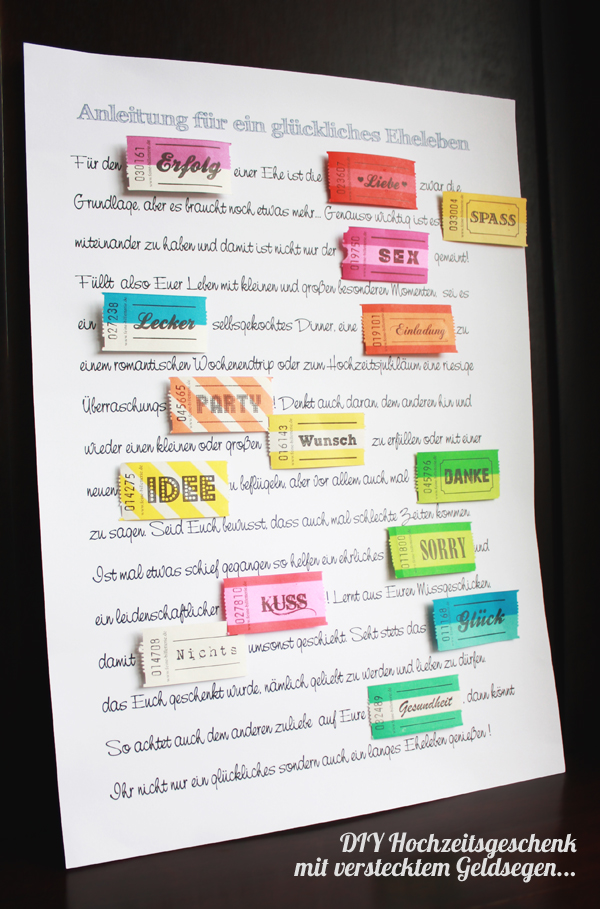 Anleitung für ein glückliches Eheleben
Für den 030161 Erfolg einer Ehe ist die 023607 Liebe zwar die
Grundlage, aber es braucht noch etwas mehr... Genauso wichtig ist es 033004 SPASS
miteinander zu haben und damit ist nicht nur der 019750 SEX gemeint!
Füllt also Euer Leben mit kleinen und großen besonderen Momenten, sei es
ein 027238 Lecker selbsgekochtes Dinner, eine 019101 Einladung zu
einem romantischen Wochenendtrip oder zum Hochzeitsjubiläum eine riesige
Überraschungs 045665 PARTY! Denkt auch daran, dem anderen hin und
wieder einen kleinen oder großen 016143 Wunsch zu erfüllen oder mit einer
neuen 014275 IDEE u beflügeln, aber vor allem auch mal 045796 DANKE
zu sagen. Seid Euch bewusst, dass auch mal schlechte Zeiten kommen.
Ist mal etwas schief gegangen so helfen ein ehrliches 011800 SORRY und
ein leidenschaftlicher 027810 KUSS! Lernt aus Euren Missgeschicken,
damit 014708 Nichts umsonst geschieht. Seht stets das 011168 Glück
das Euch geschenkt wurde, nämlich geliebt zu werden und lieben zu dürfen.
So achtet auch dem anderen zuliebe auf Eure 032489 Gesundheit, dann könnt
Ihr nicht nur ein glückliches sondern auch ein langes Eheleben genießen!
DIY Hochzeitsgeschenk
mit verstecktem Geldsegen...